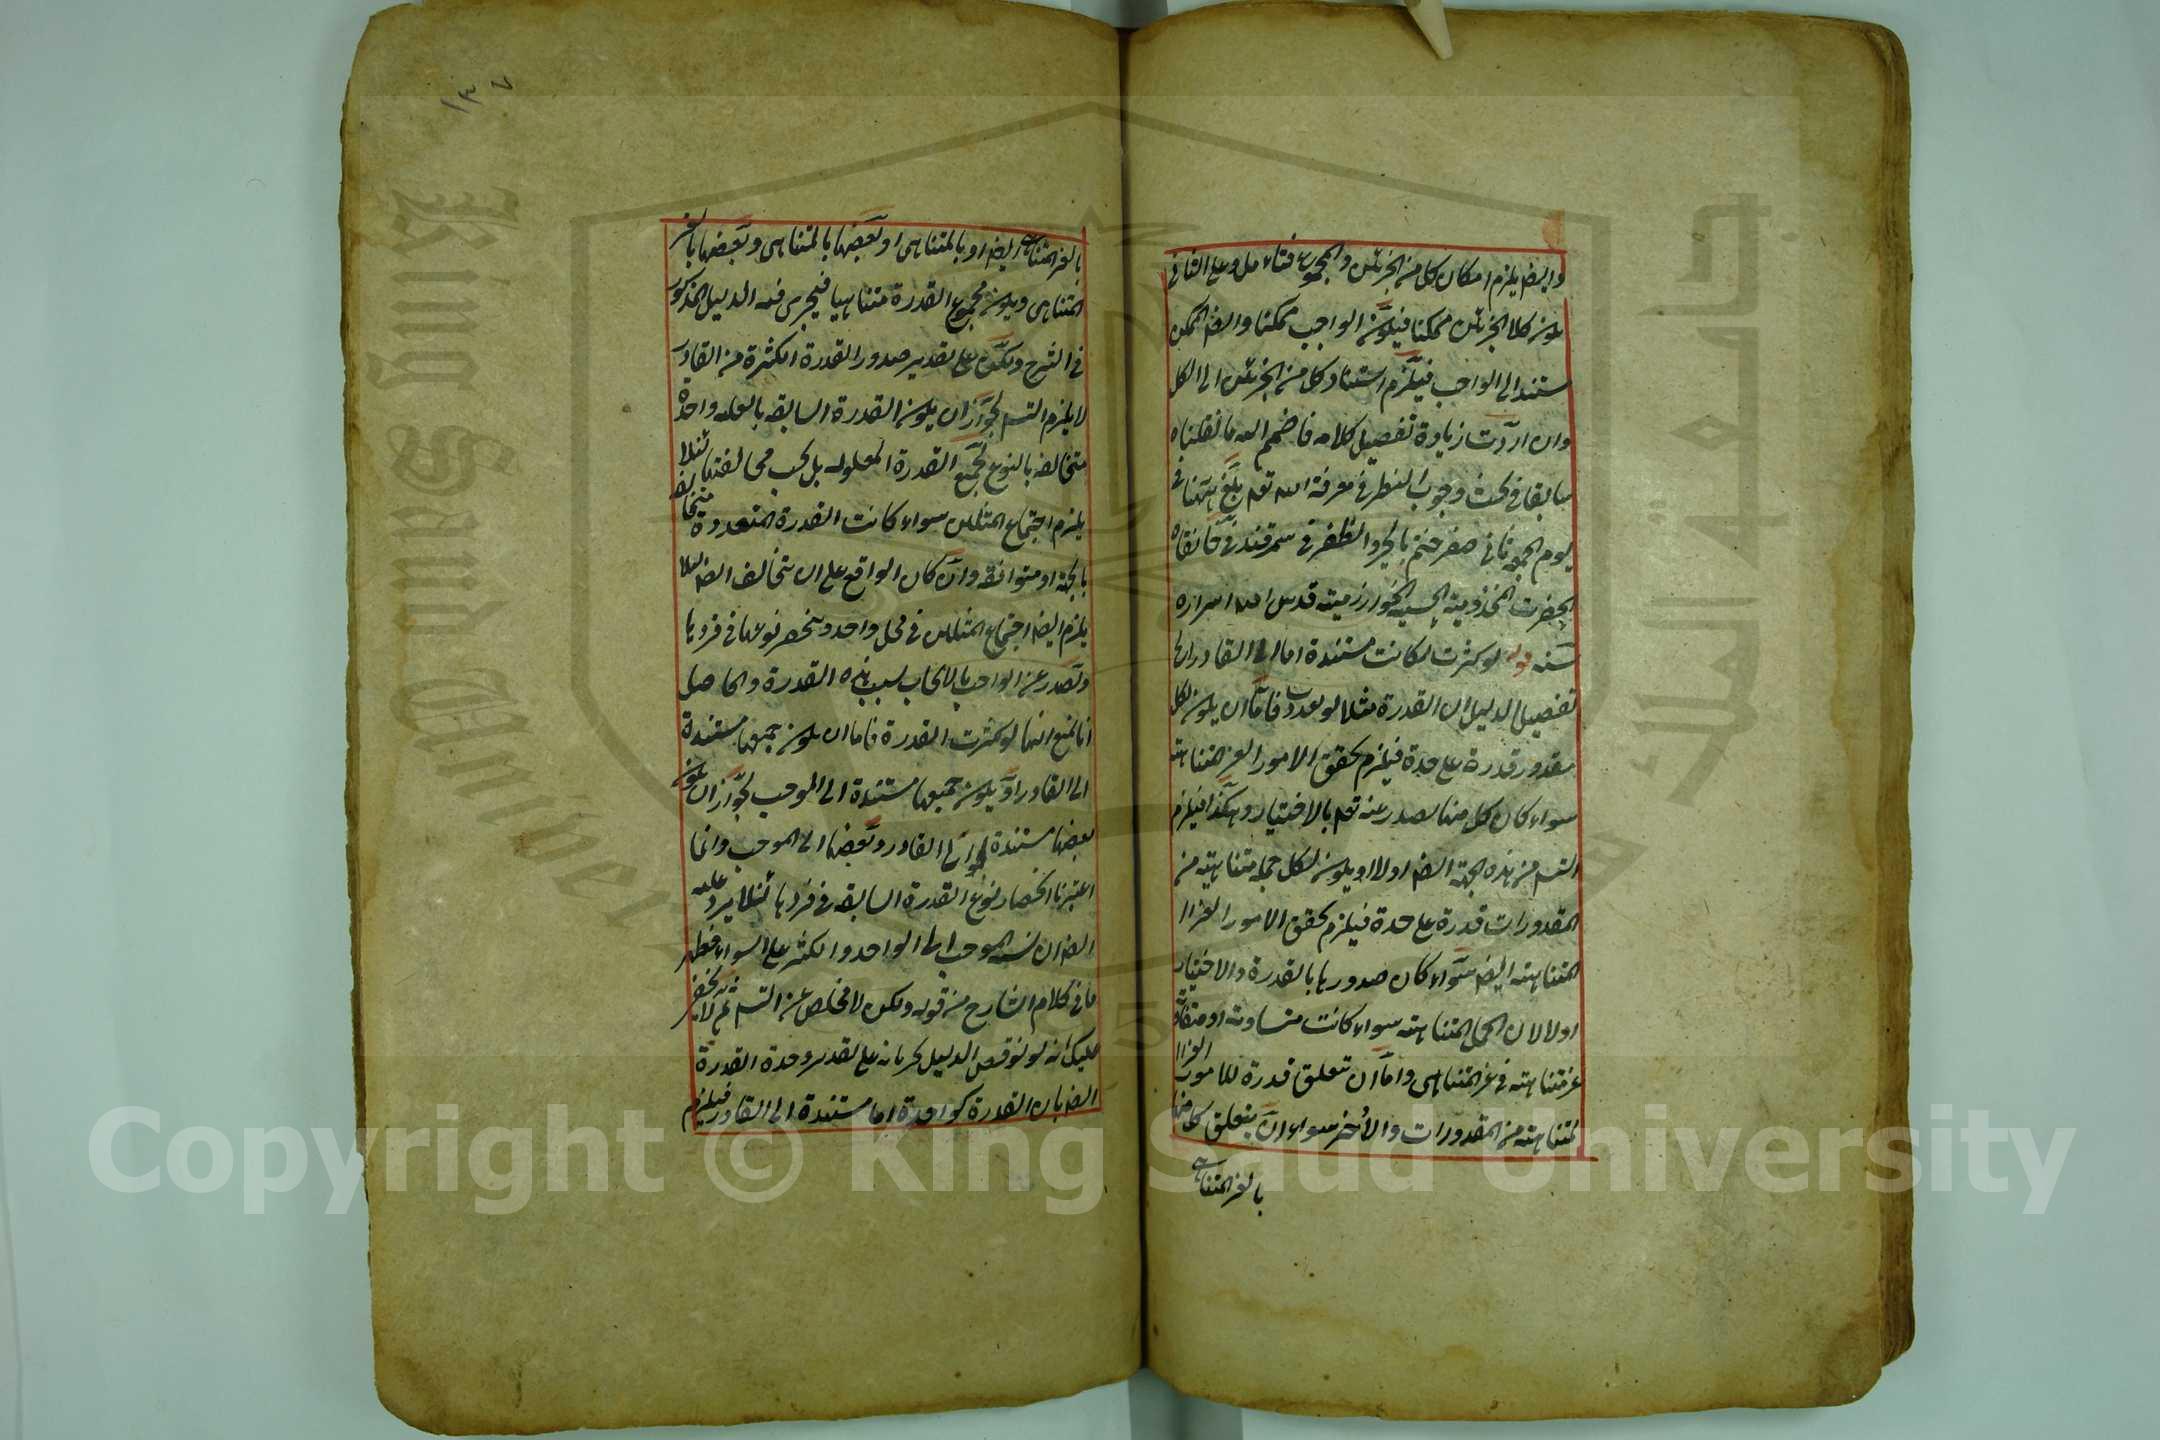 وايضا يلزم امكان كل من الجزئين والمجموع فتاءمل وعلى الثاني
يكون كلا الجزئين ممكنا فيكون الواجب ممكنا وايضا الممكن
مستند الى الواجب فيلزم استناد كل من الجزئين الى الكل
وان اردت زيادة تفصيل كلامه فاضمم اليه ما نقلناه
سابقا في بحث وجوب النظر في معرفة الله تعا بلغ ههنا في
يوم الجمعة ثاني صفر ختم بالخير والظفر في سمرقند في خانقاه
الحضرت المخدومية الحسينية الخوارزمية قدس الله اسراره
سنة قوله لو كثرت لكانت مستندة اما الى القادر الى
تفصيل الدليل ان القدرة مثلا لو تعددت فاما ان يكون لكل
مقدور قدرة على حدة فيلزم تحقق الامور الغير المتناهية
سواء كان كل منها يصدر عنه تعا بالاختيار وهكذا فيلزم
التسم من هذه الجهة ايضا اولا او يكون لكل جملة متناهية من
المقدورات قدرة على حدة فيلزم تحقق الامور الغير ال
المتناهية ايضا سواء كان صدورها بالقدرة والاختيار
اولا لان الجمل المتناهية سواء كانت متساوية او متفاوتة
غير متناهية في غير المتناهي واما ان تتعلق قدرة للامور الغير ال
لمتناهية من المقدورات والاخر سواء ان يتعلق كل منها
بالغير المتناهي
١٣٧
بالغير المتناهي ايضا او بالمتناهي او بعضها بالمتناهي وبعضها بالغير
المتناهي ويكون مجموع القدرة متناهيا فيجري فيه الدليل المذكور
في الشرح ولكن على تقدير صدور القدرة الكثيرة من القادر
لا يلزم التسم لجواز ان يكون القدرة السابقة بالعلية واحدة
متخالفة بالنوع لجميع القدرة المعلولة بل يجب مخالفتها لئلا
يلزم اجتماع المثلين سواء كانت القدرة المتعددة متخالفة
بالجهة او متوافقة وان كان الواقع على ان تتخالف ايضا لئلا
يلزم ايضا اجتماع المثلين في محل واحد وينحصر نوعها في فردها
وتصدر عن الواجب بالايجاب بسبب هذه القدرة والحاصل
انا نمنع انها لو كثرت القدرة فاما ان يكون جميعها مستندة
الى القادر او يكون جميعها مستندة الى الموجب لجواز ان يكون
بعضها مستندة الى القادر وبعضها الى الموجب وانما
اعتبرنا انحصار نوع القدرة السابقة في فردها لئلا يرد عليه
ايضا ان نسبة الموجب الى الواحد والكثير على السواء فظهر
ما في كلام الشارح من قوله ولكن لا مخلص عن التسم ثم لا يخفى
عليك انه لو نوقض الدليل بجريانه على تقدير وحدة القدرة
ايضا بان القدرة كواحدة اما مستندة الى القادر فيلزم